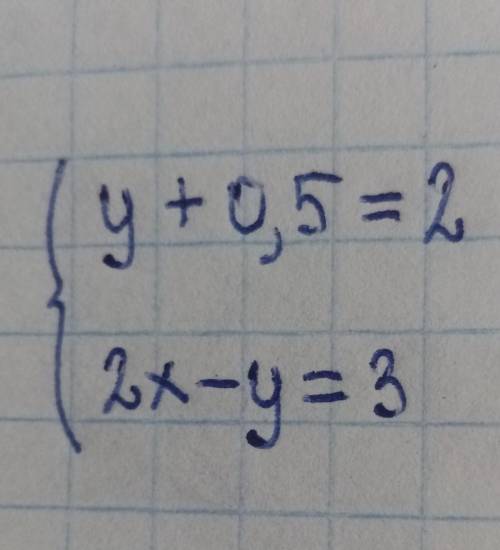 y + 0,5 = 2
2x - y = 3